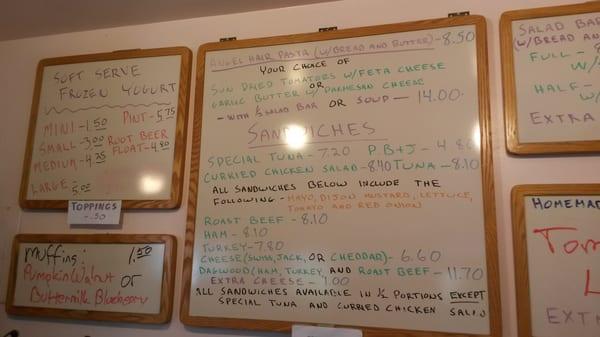 SOFT SERVE
FROZEN YOGURT
MINI - 1.50
SMALL - 3.00
MEDIUM - 4.25
LARGE - 5.00
PINT - 5.75
ROOT BEER
FLOAT - 4.80
TOPPINGS
- .50
MUFFINS: 1.50
Pumpkin Walnut or
Buttermilk Blueberry
ANGEL HAIR PASTA (W/BREAD AND BUTTER) - 8.50
YOUR CHOICE OF
SUN DRIED TOMATOES W/FETA CHEESE
OR
GARLIC BUTTER W/PARMESAN CHEESE
- WITH ½ SALAD BAR OR SOUP - 14.00
SANDWICHES
SPECIAL TUNA - 7.20 P.B+J - 4.80
CURRIED CHICKEN SALAD - 8.40 TUNA - 8.10
ALL SANDWICHES BELOW INCLUDE THE
FOLLOWING - MAYO, DIJON MUSTARD, LETTUCE,
TOMATO AND RED ONION
ROAST BEEF - 8.10
HAM - 8.10
TURKEY - 7.80
CHEESE (SWISS, JACK, OR CHEDDAR) - 6.60
DAGWOOD (HAM, TURKEY, AND ROAST BEEF - 11.70
EXTRA CHEESE - 1.00
ALL SANDWICHES AVAILABLE IN ½ PORTIONS EXCEPT
SPECIAL TUNA AND CURRIED CHICKEN SALAD
SALAD BAR
(W/BREAD AND
FULL - 8
W/S
HALF -
W/
EXTRA
HOMEMAD
Tom
L
EXTR